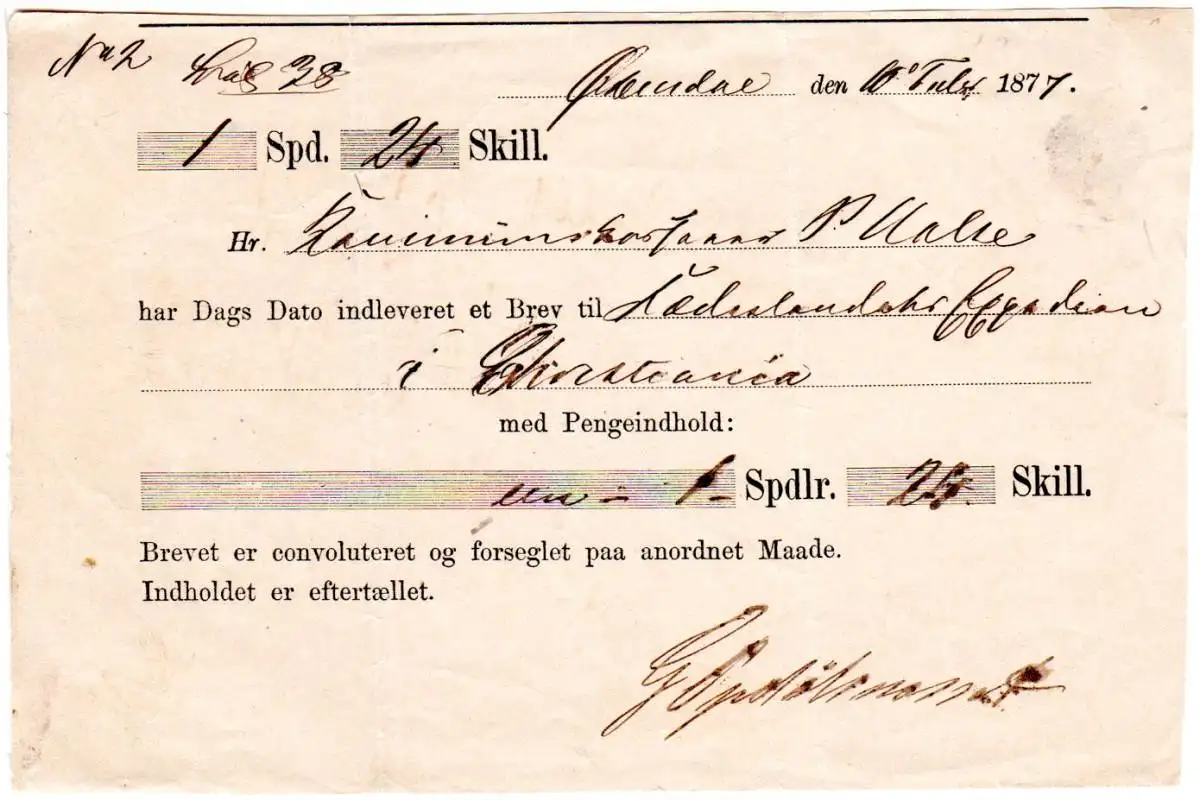 No 2 38
den 10' Juli 1877.
1 Spd. 24 Skill.
Hr. P. Halse
har Dags Dato indleveret et Brev til Fædrelandets Expedion
i Christiania
med Pengeindhold:
een - 1 - Spdlr. 24. Skill.
Brevet er convoluteret og forseglet paa anordnet Maade.
Indholdet er eftertællet.